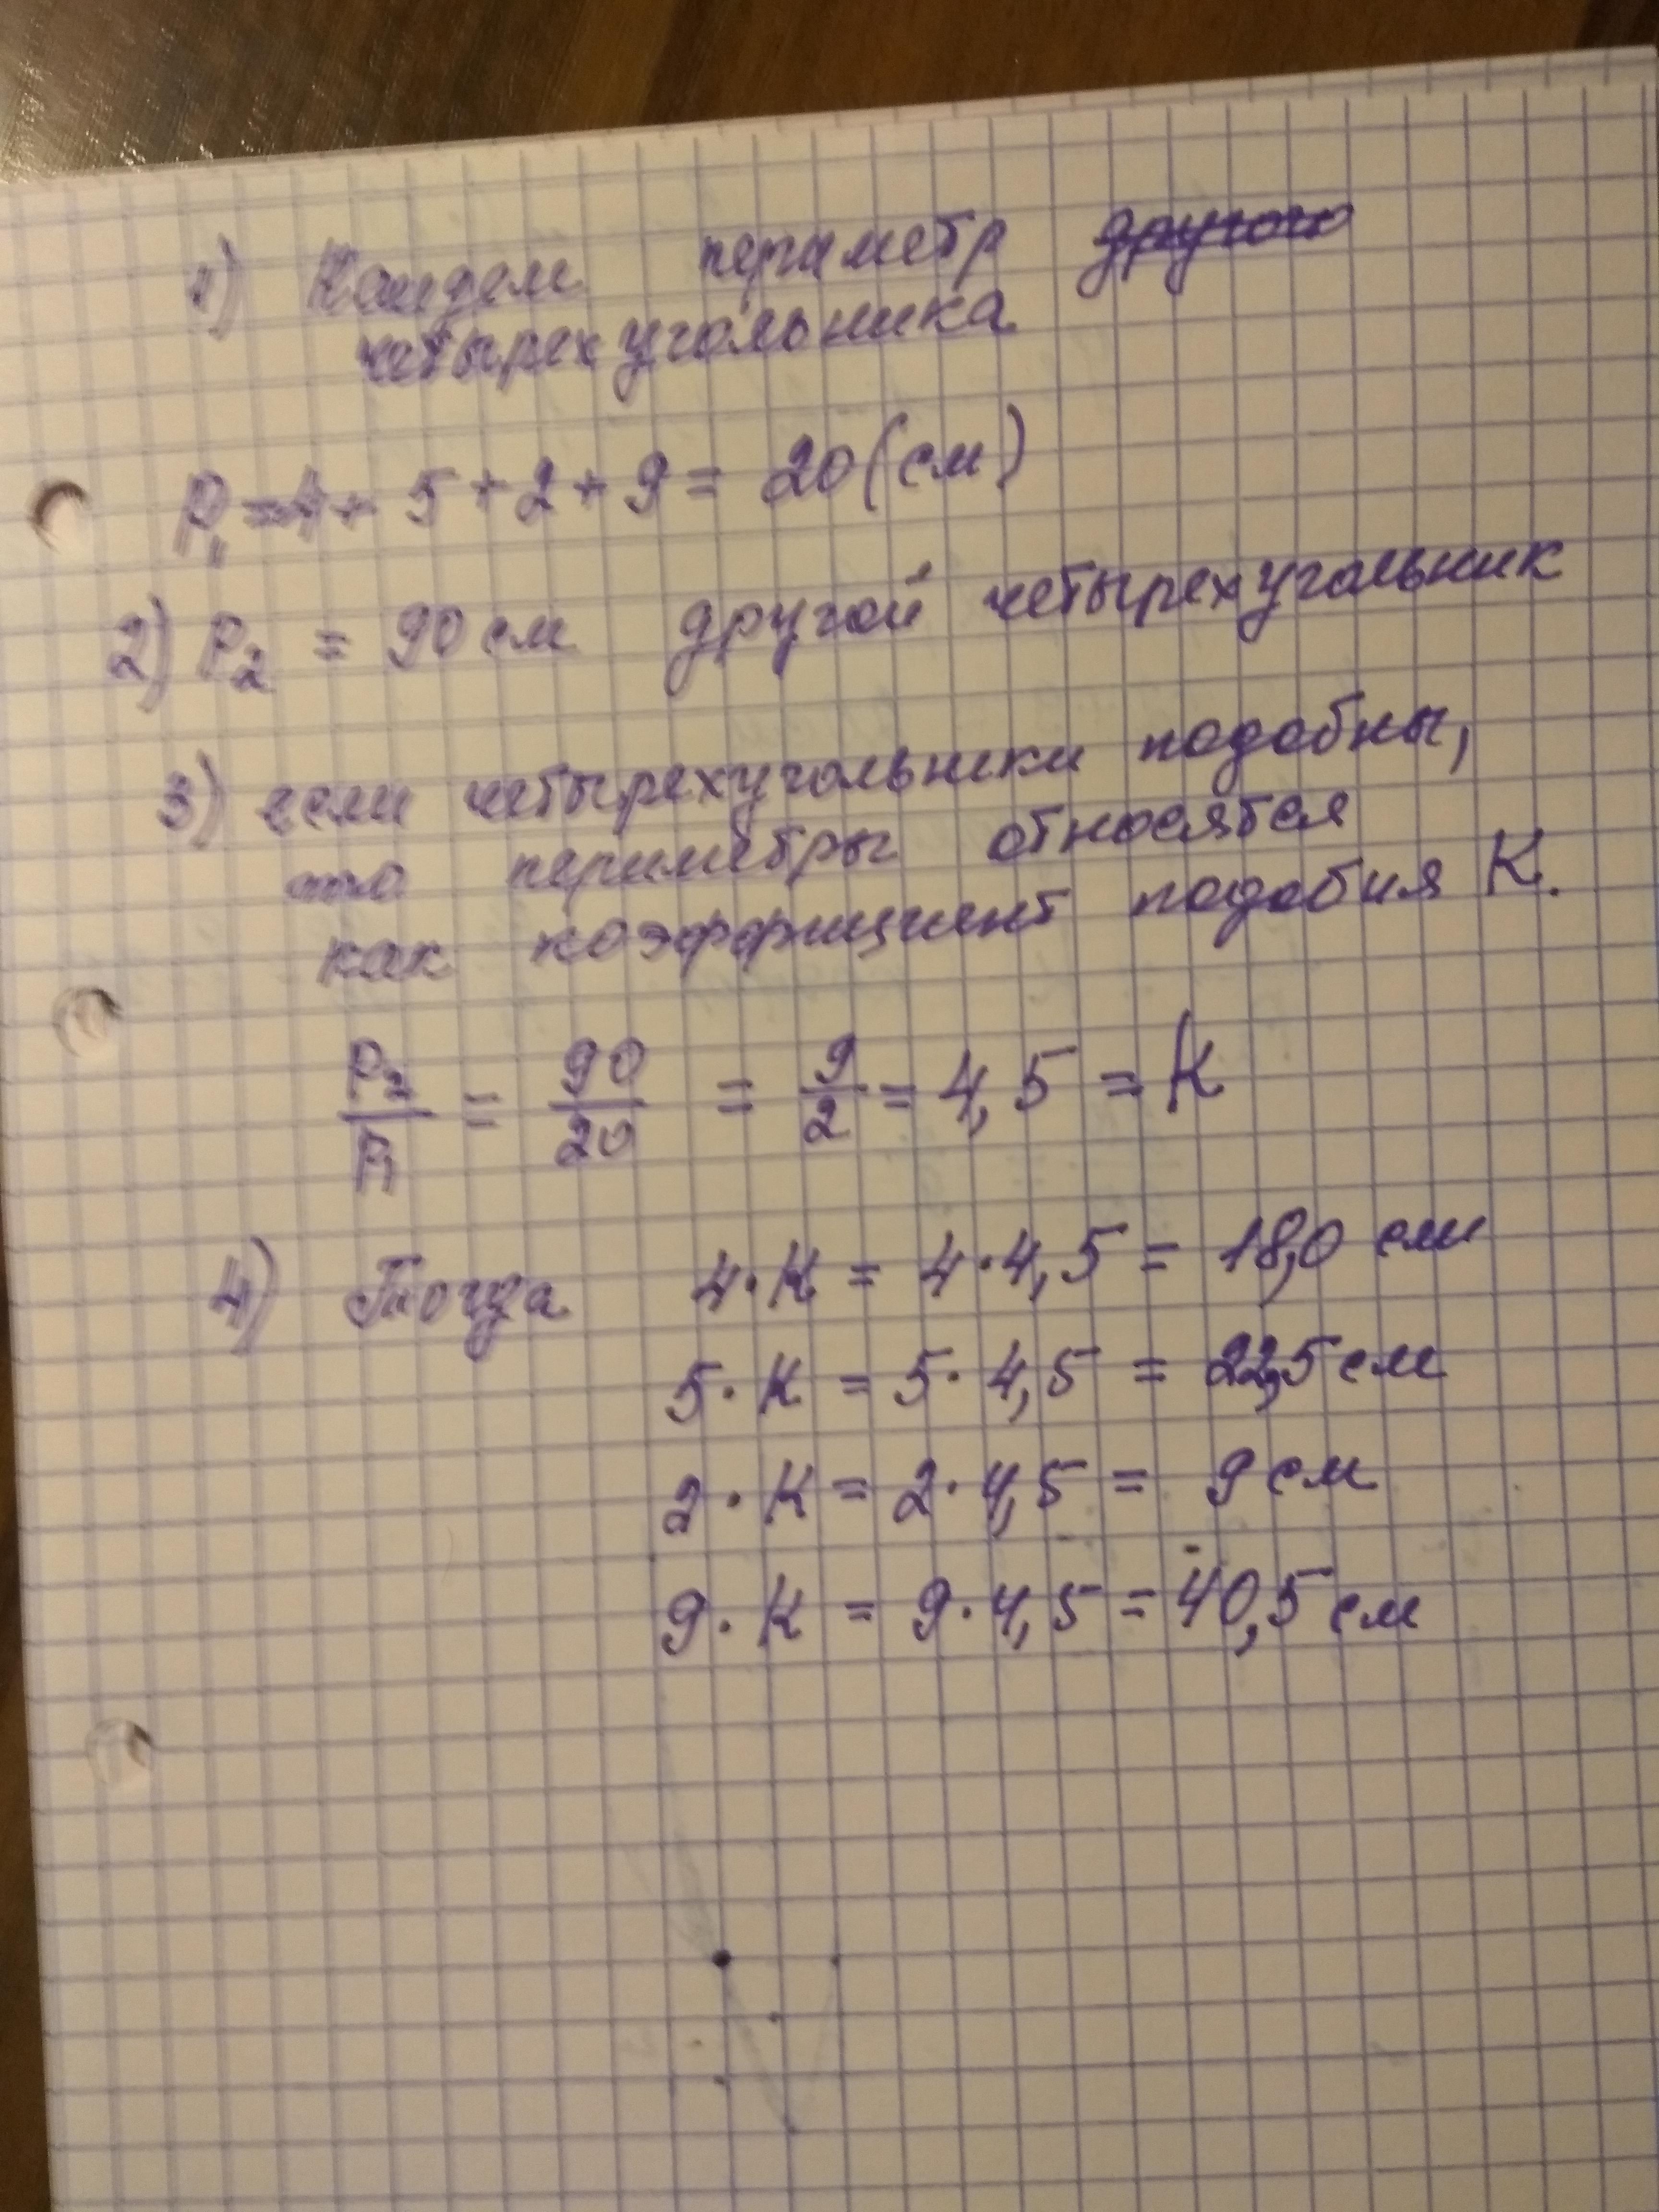 1) Найдем периметр другого
четырехугольника
P₁ = 4 + 5 + 2 + 9 = 20 (см)
2) P₂ = 90 см другой четырехугольник
3) если четырехугольники подобны,
то периметры относятся
как коэффициент подобия К.
P₂/P₁ = 90/20 = 9/2 = 4,5 = К
4) Тогда 4·К = 4·4,5 = 18,0 см
5·К = 5·4,5 = 22,5 см
2·К = 2·4,5 = 9 см
9·К = 9·4,5 = 40,5 см